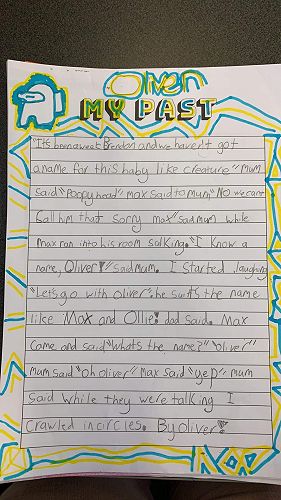 Oliver
MY PAST
"It's been a week Brendon and we haven't got
a name for this baby like creature" mum
said "Poopy head" max said to mum "NO we cant
Call him that sorry max" sad mum while
max ran into his room solking. "I know a
name, Oliver!" sad mum. I started laughing
"Let's go with oliver". he suits the name
like Max and Ollie! dad said. Max
came and said "whats the name?" "oliver"
mum said "oh oliver" max said "yep" mum
said while they were talking I
crawled in circles. By oliver!